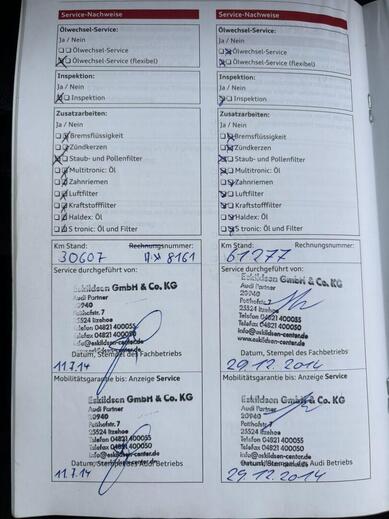 Service-Nachweise
Ölwechsel-Service:
Ja / Nein
Ölwechsel-Service
Ölwechsel-Service (flexibel)
Inspektion:
Ja / Nein
Inspektion
Zusatzarbeiten:
Ja / Nein
Bremsflüssigkeit
Zündkerzen
Staub- und Pollenfilter
Multitronic: Öl
Zahnriemen
Luftfilter
Kraftstofffilter
Haldex: Öl
S tronic: Öl und Filter
Km Stand: Rechnungsnummer:
30607 8161
Service durchgeführt von:
Eskildsen GmbH & Co. KG
Audi Partner
20940
Potthofstr. 7
25524 Itzehoe
Telefon 04821 400055
Telefax 04821 400050
info@eskildsen-center.de
www.eskildsen-center.de
Datum, Stempel des Fachbetriebs
11.7.14
Mobilitätsgarantie bis: Anzeige Service
Eskildsen GmbH & Co. KG
Audi Partner
20940
Potthofstr. 7
25524 Itzehoe
Telefon 04821 400055
Telefax 04821 400050
info@eskildsen-center.de
Datum, Stempel des Audi Betriebs
11.7.14
Service-Nachweise
Ölwechsel-Service:
Ja / Nein
Ölwechsel-Service
Ölwechsel-Service (flexibel)
Inspektion:
Ja / Nein
Inspektion
Zusatzarbeiten:
Ja / Nein
Bremsflüssigkeit
Zündkerzen
Staub- und Pollenfilter
Multitronic: Öl
Zahnriemen
Luftfilter
Kraftstofffilter
Haldex: Öl
S tronic: Öl und Filter
Km Stand: Rechnungsnummer:
61277
Service durchgeführt von:
Eskildsen GmbH & Co. KG
Audi Partner
20940
Potthofstr. 7
25524 Itzehoe
Telefon 04821 400055
Telefax 04821 400050
info@eskildsen-center.de
www.eskildsen-center.de
Datum, Stempel des Fachbetriebs
29.12.2014
Mobilitätsgarantie bis: Anzeige Service
Eskildsen GmbH & Co. KG
Audi Partner
20940
Potthofstr. 7
25524 Itzehoe
Telefon 04821 400055
Telefax 04821 400050
info@eskildsen-center.de
Datum, Stempel des Audi Betriebs
29.12.2014